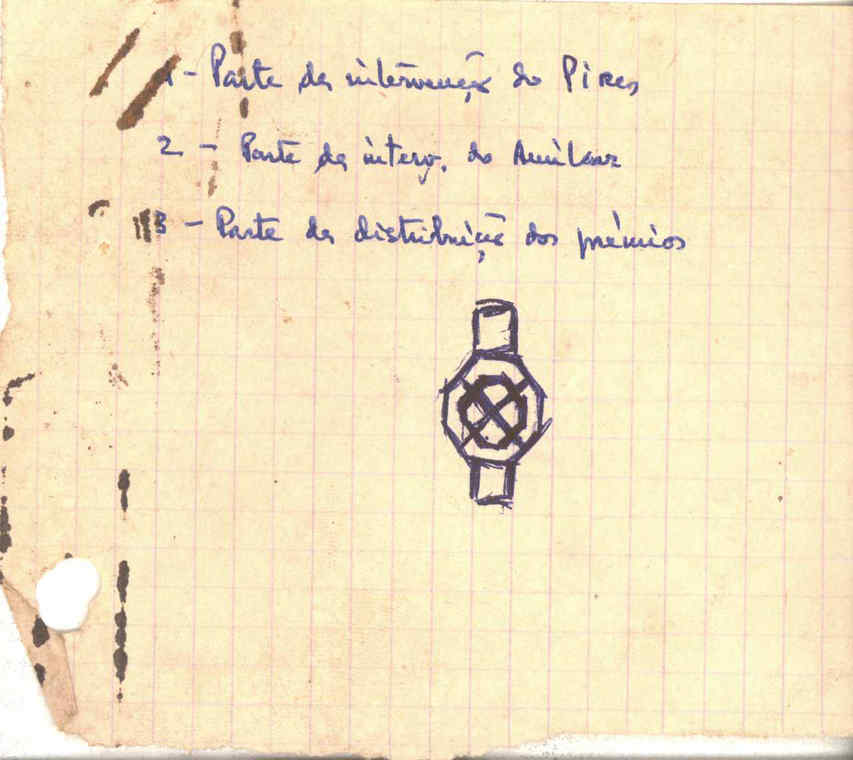 1 - Parte da intervenção do Pires
2 - Parte da interv. do Amilcar
3 - Parte da distribuição dos prémios